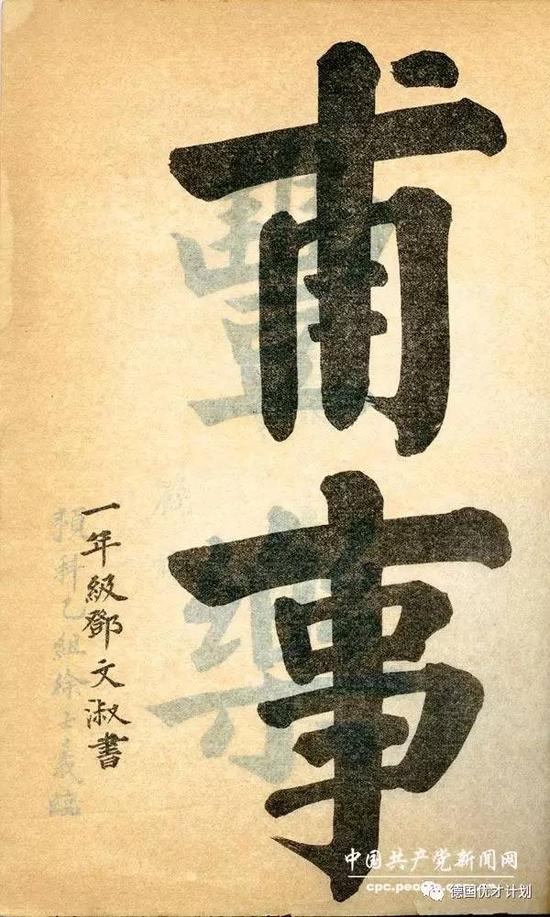 甫事
一年級鄧文淑書
豐樂
預科乙組徐士義臨
中国共产党新闻网
cpc.people
德国优才计划